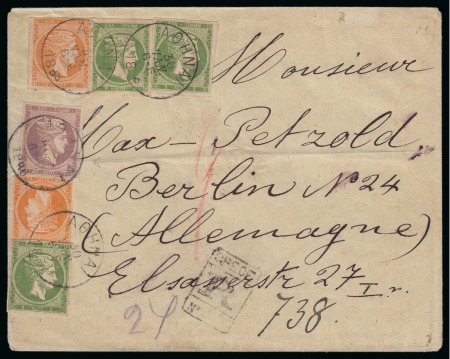 ΑΘΗΝΑΙ
ΑΘΗΝΑΙ
Monsieur
Max - Petzold
Berlin N° 24
(Allemagne)
ΑΘΗΝΑΙ
Elsasserstr 27 I r.
24
R
N°
738.